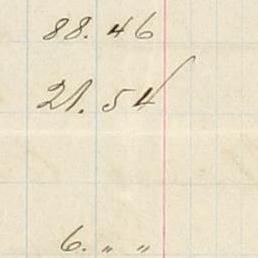 88. 46
21. 54
6. " "